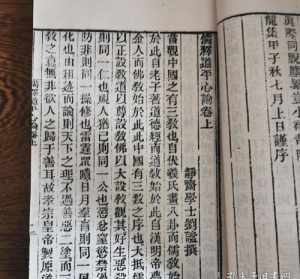 龍集甲子秋七月上日謹
儒釋道平心論卷上
靜齋學士劉謐撰
嘗觀中國之有三教也自伏羲氏畫八卦而儒教始
於此自老子著道德經而道教始於此自漢明帝夢
金人而佛教始於此此中國有三教之序也大抵儒
以正設教道以尊設教佛以大設教觀其好生惡殺
則同一仁也視人猶己則同一公也懲忿窒慾禁過
防非則同一操修也雷霆眾聵日月群盲則同一風
化也由粗迹而論則天下之理不過善惡二塗而三
教之意無非欲人之歸于善耳故孝宗皇帝製原